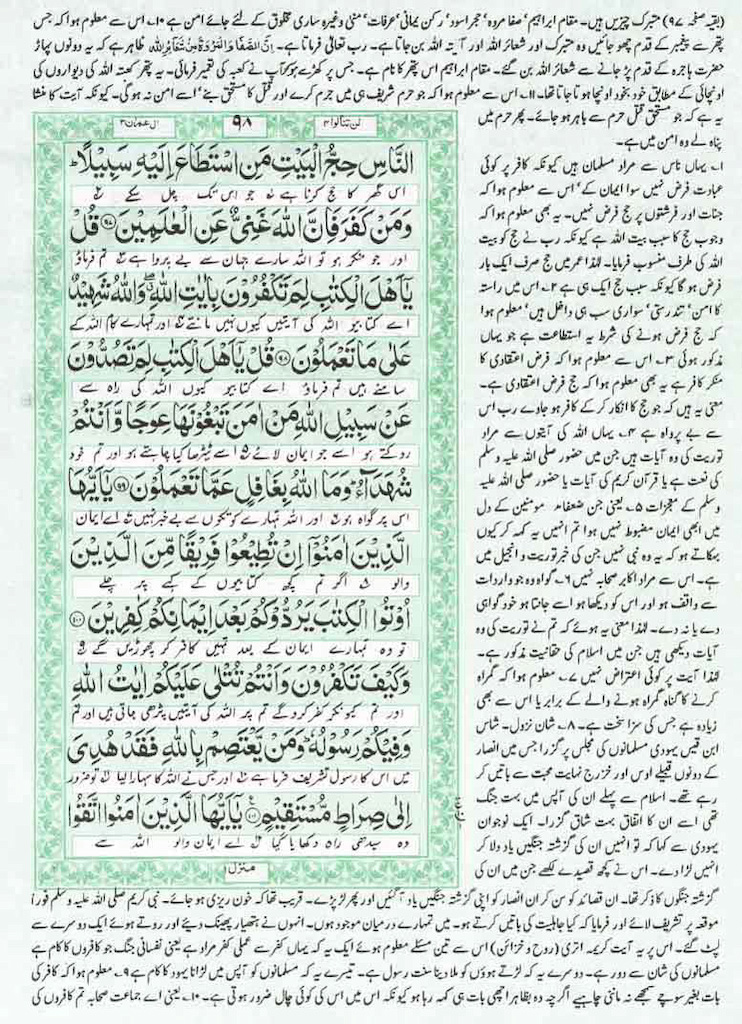 (بقیہ صفحہ ۹۷) متبرک چیزیں ہیں۔ مقام ابراہیم' صفا مروہ' حجر اسود' رکن یمانی' عرفات' منیٰ وغیرہ ساری مخلوق کے لئے جائے امن ہے ۱۰۔ اس سے معلوم ہوا کہ جس
پتھر سے پیغمبر کے قدم چھو جائیں وہ متبرک اور شعائر اللہ اور آیۃ اللہ بن جاتا ہے۔ رب تعالیٰ فرماتا ہے۔ اِنَّ الصَّفَا وَالْمَرْوَةَ مِنْ شَعَآئِرِ اللّٰهِ ظاہر ہے کہ یہ دونوں پہاڑ
حضرت ہاجرہ کے قدم پڑ جانے سے شعائر اللہ بن گئے۔ مقام ابراہیم اس پتھر کا نام ہے۔ جس پر کھڑے ہو کر آپ نے کعبہ کی تعمیر فرمائی۔ یہ پتھر کعبۃ اللہ کی دیواروں کی
اونچائی کے مطابق خود بخود اونچا ہوتا جاتا تھا۔ ۱۱۔ اس سے معلوم ہوا کہ جو حرم شریف ہی میں جرم کرے اور قتل کا مستحق بنے' اسے امن نہ ہو گی۔ کیونکہ آیت کا منشا
یہ ہے کہ جو مستحق قتل حرم سے باہر ہو جائے۔ پھر حرم میں
پناہ لے وہ امن میں ہے۔
۱۔ یہاں ناس سے مراد مسلمان ہیں کیونکہ کافر پر کوئی
عبادت فرض نہیں سوا ایمان کے' اس سے معلوم ہوا کہ
جنات اور فرشتوں پر حج فرض نہیں۔ یہ بھی معلوم ہوا کہ
وجوب حج کا سبب بیت اللہ ہے کیونکہ رب نے حج کو بیت
اللہ کی طرف منسوب فرمایا۔ لہٰذا عمر میں حج صرف ایک بار
فرض ہو گا کیونکہ سبب حج ایک ہی ہے ۲۔ اس میں راستہ
کا امن' تندرستی' سواری سب ہی داخل ہیں' معلوم ہوا
کہ حج فرض ہونے کی شرط یہ استطاعت ہے جو یہاں
مذکور ہوئی ۳۔ اس سے معلوم ہوا کہ فرض اعتقادی کا
منکر کافر ہے یہ بھی معلوم ہوا کہ حج فرض اعتقادی ہے۔
معنی یہ ہیں کہ جو حج کا انکار کر کے کافر ہو جاوے رب اس
سے بے پرواہ ہے ۴۔ یہاں اللہ کی آیتوں سے مراد
توریت کی وہ آیات ہیں جن میں حضور صلی اللہ علیہ وسلم
کی نعت ہے یا قرآن کریم کی آیات یا حضور صلی اللہ علیہ
وسلم کے معجزات ۵۔ یعنی جن ضعفاء مومنین کے دل
میں ابھی ایمان مضبوط نہیں ہوا تم انہیں یہ کہہ کر کیوں
بہکاتے ہو کہ یہ وہ نبی نہیں جن کی خبر توریت و انجیل میں
ہے۔ اس سے مراد اکابر صحابہ نہیں ۶۔ گواہ وہ جو واردات
سے واقف ہو اور اس کو دیکھا ہو اسے جانتا ہو خود گواہی
دے یا نہ دے۔ لہٰذا معنی یہ ہوئے کہ تم نے توریت کی وہ
آیات دیکھی ہیں جن میں اسلام کی حقانیت مذکور ہے۔
لہٰذا آیت پر کوئی اعتراض نہیں ۷۔ معلوم ہوا کہ گمراہ
کرنے کا گناہ گمراہ ہونے والے کے برابر یا اس سے بھی
زیادہ ہے جس کی سزا سخت ہے۔ ۸۔ شان نزول۔ شاس
ابن قیس یہودی مسلمانوں کی مجلس پر گزرا جس میں انصار
کے دونوں قبیلے اوس اور خزرج نہایت محبت سے باتیں کر
رہے تھے۔ اسلام سے پہلے ان کی آپس میں بہت جنگ
تھی اسے ان کا اتفاق بہت شاق گزرا۔ ایک نوجوان
یہودی سے کہا کہ تو انہیں ان کی گزشتہ جنگیں یاد دلا کر
انہیں لڑا دے۔ اس نے کچھ قصیدے لکھے جن میں ان کی
لن تنالوا ۴
۹۸
ال عمران ۳
النَّاسِ حِجُّ الْبَيْتِ مَنِ اسْتَطَاعَ اِلَيْهِ سَبِيْلًا ؕ
اس گھر کا حج کرنا ہے جو اس تک چل سکے
وَمَنْ كَفَرَ فَاِنَّ اللّٰهَ غَنِيٌّ عَنِ الْعٰلَمِيْنَ ۝۹۷ قُلْ
اور جو منکر ہو تو اللہ سارے جہان سے بے پروا ہے تم فرماؤ
يٰٓاَهْلَ الْكِتٰبِ لِمَ تَكْفُرُوْنَ بِاٰيٰتِ اللّٰهِ ۖ وَاللّٰهُ شَهِيْدٌ
اے کتابیو اللہ کی آیتیں کیوں نہیں مانتے اور تمہارے کام اللہ کے
عَلٰى مَا تَعْمَلُوْنَ ۝۹۸ قُلْ يٰٓاَهْلَ الْكِتٰبِ لِمَ تَصُدُّوْنَ
سامنے ہیں تم فرماؤ اے کتابیو کیوں اللہ کی راہ سے
عَنْ سَبِيْلِ اللّٰهِ مَنْ اٰمَنَ تَبْغُوْنَهَا عِوَجًا وَّاَنْتُمْ
روکتے ہو اسے جو ایمان لائے اسے ٹیڑھا کیا چاہتے ہو اور تم خود
شُهَدَآءُ ؕ وَمَا اللّٰهُ بِغَافِلٍ عَمَّا تَعْمَلُوْنَ ۝۹۹ يٰٓاَيُّهَا
اس پر گواہ ہو اور اللہ تمہارے کوتکوں سے بے خبر نہیں اے ایمان
الَّذِيْنَ اٰمَنُوْٓا اِنْ تُطِيْعُوْا فَرِيْقًا مِّنَ الَّذِيْنَ
والو اگر تم کچھ کتابیوں کے کہے پر چلے
اُوْتُوا الْكِتٰبَ يَرُدُّوْكُمْ بَعْدَ اِيْمَانِكُمْ كٰفِرِيْنَ ۝۱۰۰
تو وہ تمہارے ایمان کے بعد تمہیں کافر کر چھوڑیں گے
وَكَيْفَ تَكْفُرُوْنَ وَاَنْتُمْ تُتْلٰى عَلَيْكُمْ اٰيٰتُ اللّٰهِ
اور تم کیونکر کفر کرو گے تم پر اللہ کی آیتیں پڑھی جاتی ہیں اور تم
وَفِيْكُمْ رَسُوْلُهٗ ؕ وَمَنْ يَّعْتَصِمْ بِاللّٰهِ فَقَدْ هُدِيَ
میں اس کا رسول تشریف فرما ہے اور جس نے اللہ کا سہارا لیا تو ضرور
اِلٰى صِرَاطٍ مُّسْتَقِيْمٍ ۝۱۰۱ يٰٓاَيُّهَا الَّذِيْنَ اٰمَنُوا اتَّقُوا
وہ سیدھی راہ دکھایا گیا اے ایمان والو اللہ سے
منزل
گزشتہ جنگوں کا ذکر تھا۔ ان قصائد کو سن کر ان انصار کو اپنی گزشتہ جنگیں یاد آ گئیں اور پھر لڑ پڑے۔ قریب تھا کہ خون ریزی ہو جائے۔ نبی کریم صلی اللہ علیہ وسلم فوراً
موقعہ پر تشریف لائے اور فرمایا کہ کیا جاہلیت کی باتیں کرتے ہو۔ میں تمہارے درمیان موجود ہوں۔ انہوں نے ہتھیار پھینک دیئے اور روتے ہوئے ایک دوسرے سے
لپٹ گئے۔ اس پر یہ آیت کریمہ اتری (روح و خزائن) اس سے تین مسئلے معلوم ہوئے ایک یہ کہ یہاں کفر سے عملی کفر مراد ہے یعنی نفسانی جنگ جو کافروں کا کام ہے
مسلمانوں کی شان سے دور ہے۔ دوسرے یہ کہ لڑتے ہوؤں کو ملا دینا سنت رسول ہے۔ تیسرے یہ کہ مسلمانوں کو آپس میں لڑانا یہود کا کام ہے ۹۔ معلوم ہوا کہ کافر کی
بات بغیر سوچے سمجھے نہ ماننی چاہیے اگرچہ وہ بظاہر اچھی بات ہی کہہ رہا ہو کیونکہ اس میں اس کی کوئی چال ضرور ہوتی ہے۔ ۱۰۔ یعنی اے جماعت صحابہ تم کافروں کی